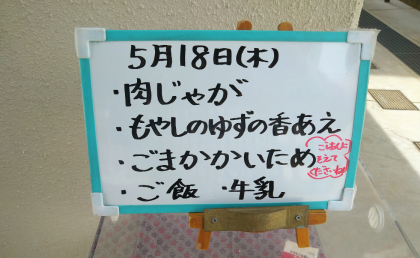 5月18日(木)
・肉じゃが
・もやしのゆずの香あえ
・ごまかかいため
ごはんに
そえて
ださいね
・ご飯 ・牛乳